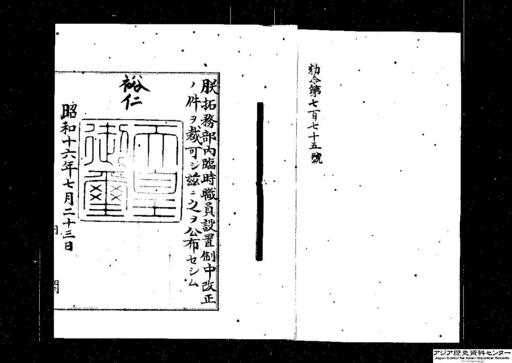 勅令第七百七十五號
朕拓務部內臨時職員設置制中改正
ノ件ヲ裁可シ茲ニ之ヲ公布セシム
裕仁
天皇
御璽
昭和十六年七月二十三日
アジア歴史資料センター
Japan Center for Asian Historical Records